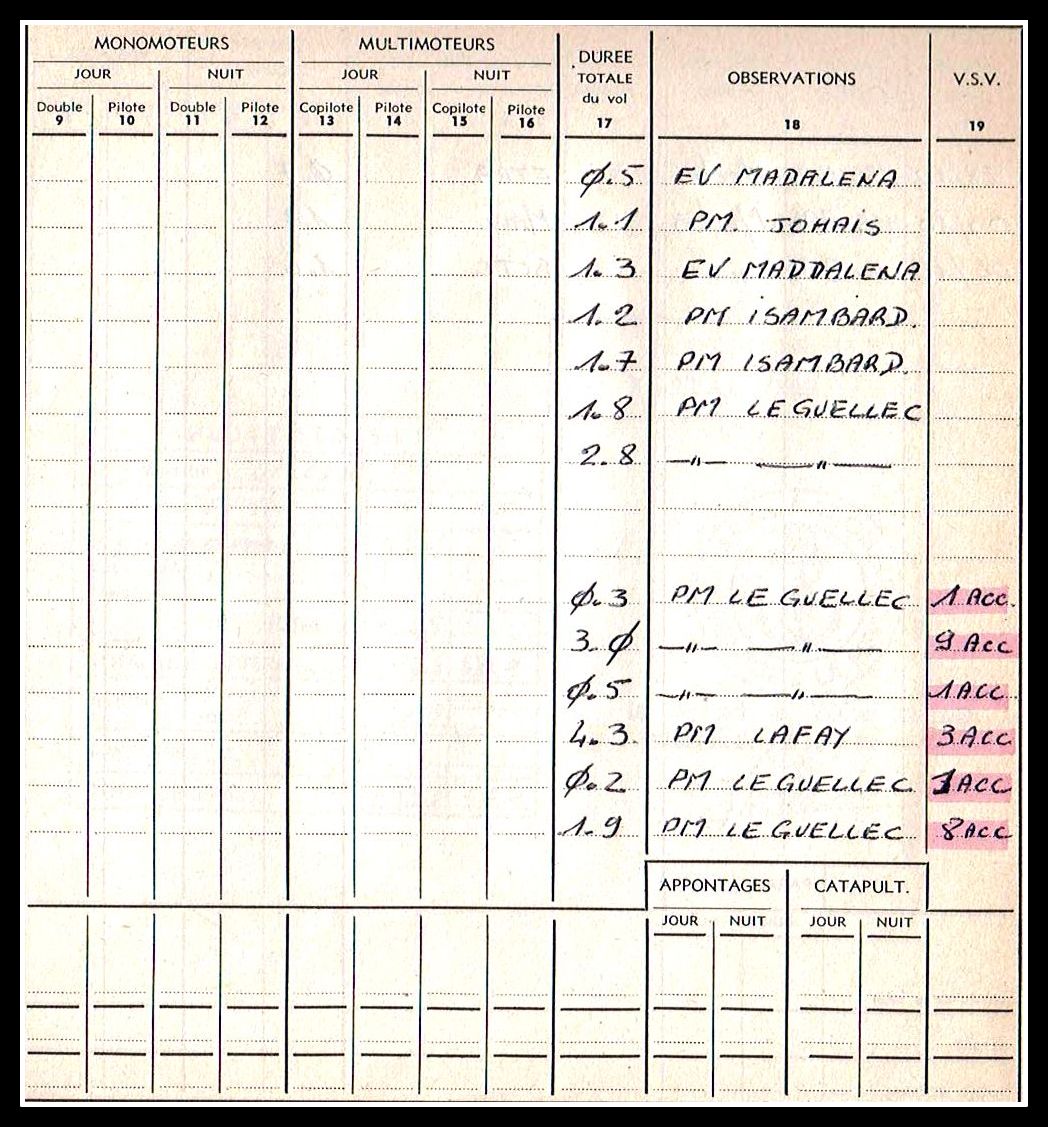 MONOMOTEURS MULTIMOTEURS DUREE TOTALE du vol OBSERVATIONS V.S.V.
JOUR NUIT JOUR NUIT
Double Pilote Double Pilote Copilote Pilote Copilote Pilote
9 10 11 12 13 14 15 16 17 18 19
Ø.5 EV MADALENA
1.1 PM. JOHAIS
1.3 EV MADDALENA
1.2 PM ISAMBARD.
1.7 PM ISAMBARD.
1.8 PM LE GUELLEC
2.8 —"— —"—
Ø.3 PM LE GUELLEC 1 ACC.
3.Ø —"— —"— 9 ACC
Ø.5 —"— —"— 1 ACC.
4.3 PM LAFAY 3 ACC
Ø.2 PM LE GUELLEC 1 ACC
1.9 PM LE GUELLEC 8 ACC
APPONTAGES CATAPULT.
JOUR NUIT JOUR NUIT